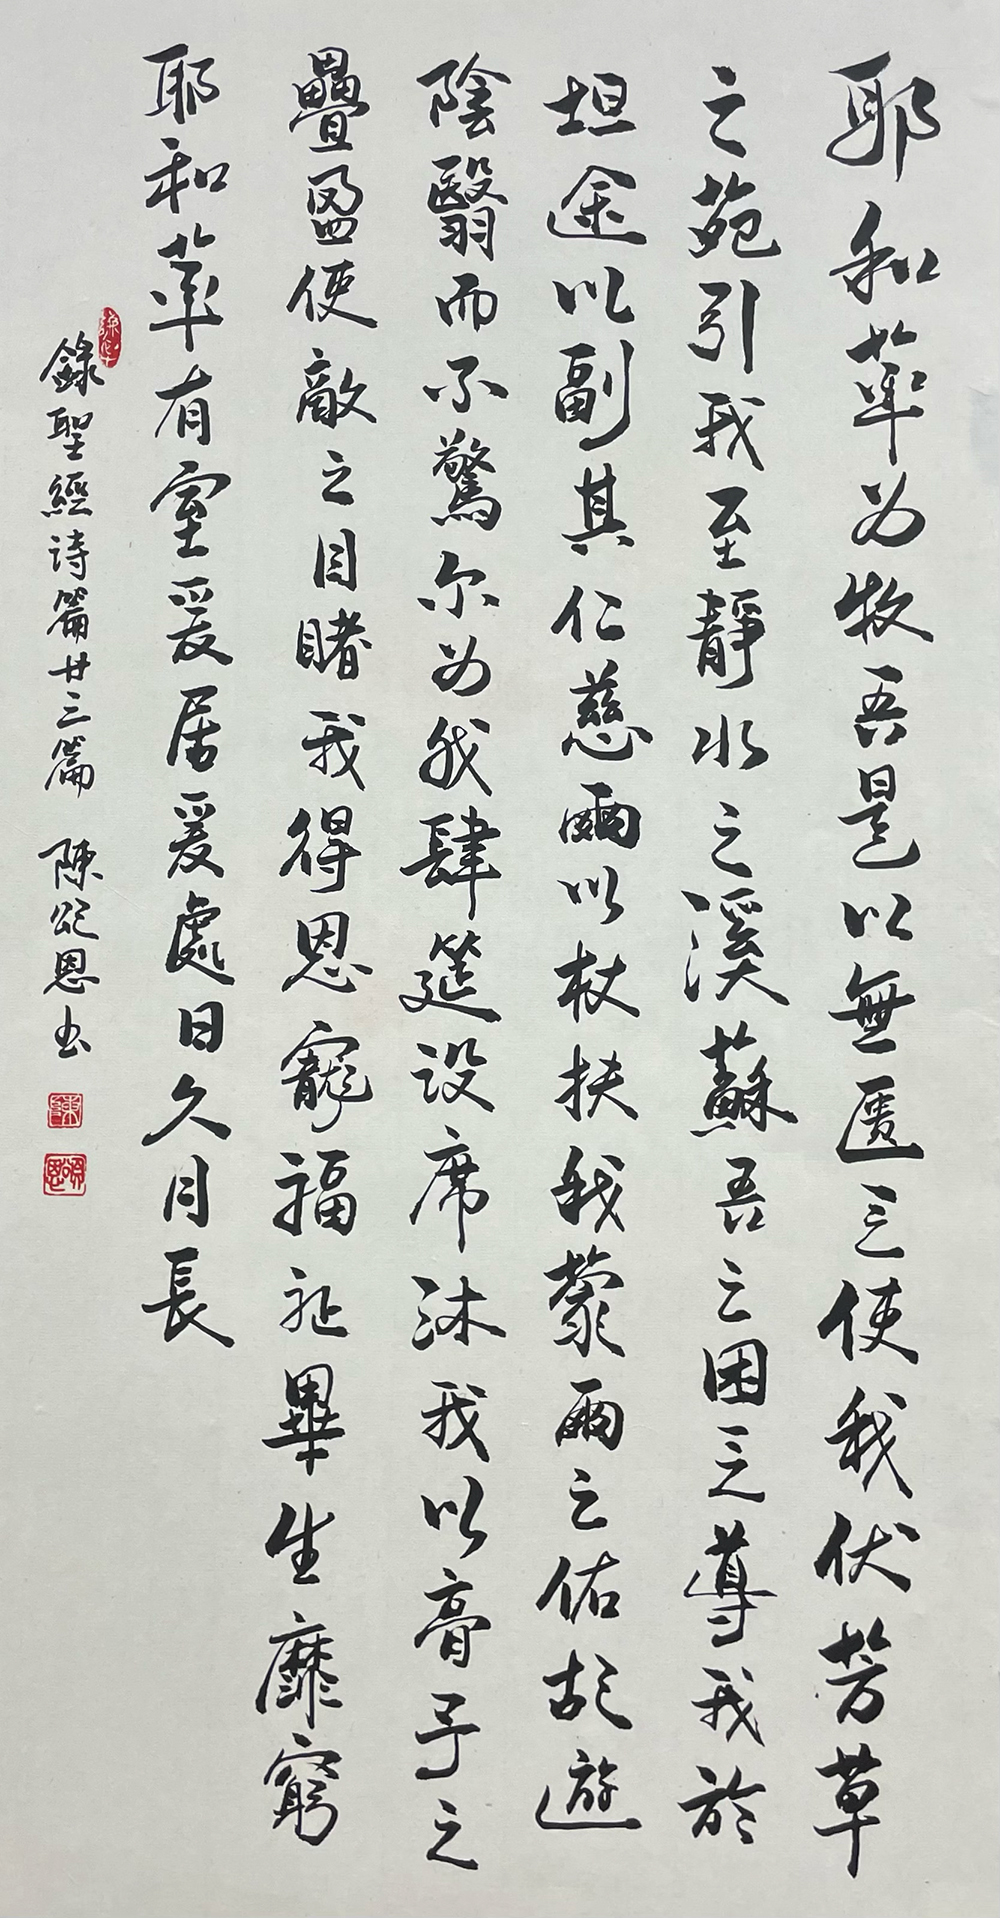 耶和華为牧吾是以無匱之使我伏芳草
之苑引我至靜水之溪蘇吾之困乏導我於
坦途以副其仁慈爾以杖扶我蒙爾之佑故遊
陰翳而不驚尔为我肆筵设席沐我以膏予之
疊盈使敵之目睹我得恩寵福祉畢生靡窮
耶和華有室爰居爰處日久月長
錄聖經诗篇廿三篇 陳颂恩书
陳
頌恩